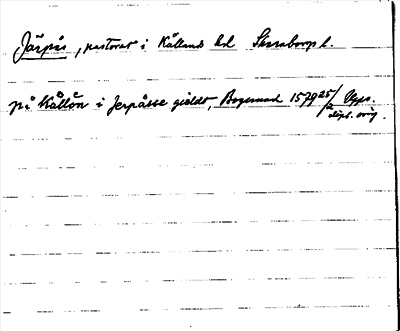 Järpås, pastorat i Kållands hd Skaraborgs l.
på Kållön i Jerpåsse gieldt, Bogesund 1579 25/2 Upps.
dipl. orig.